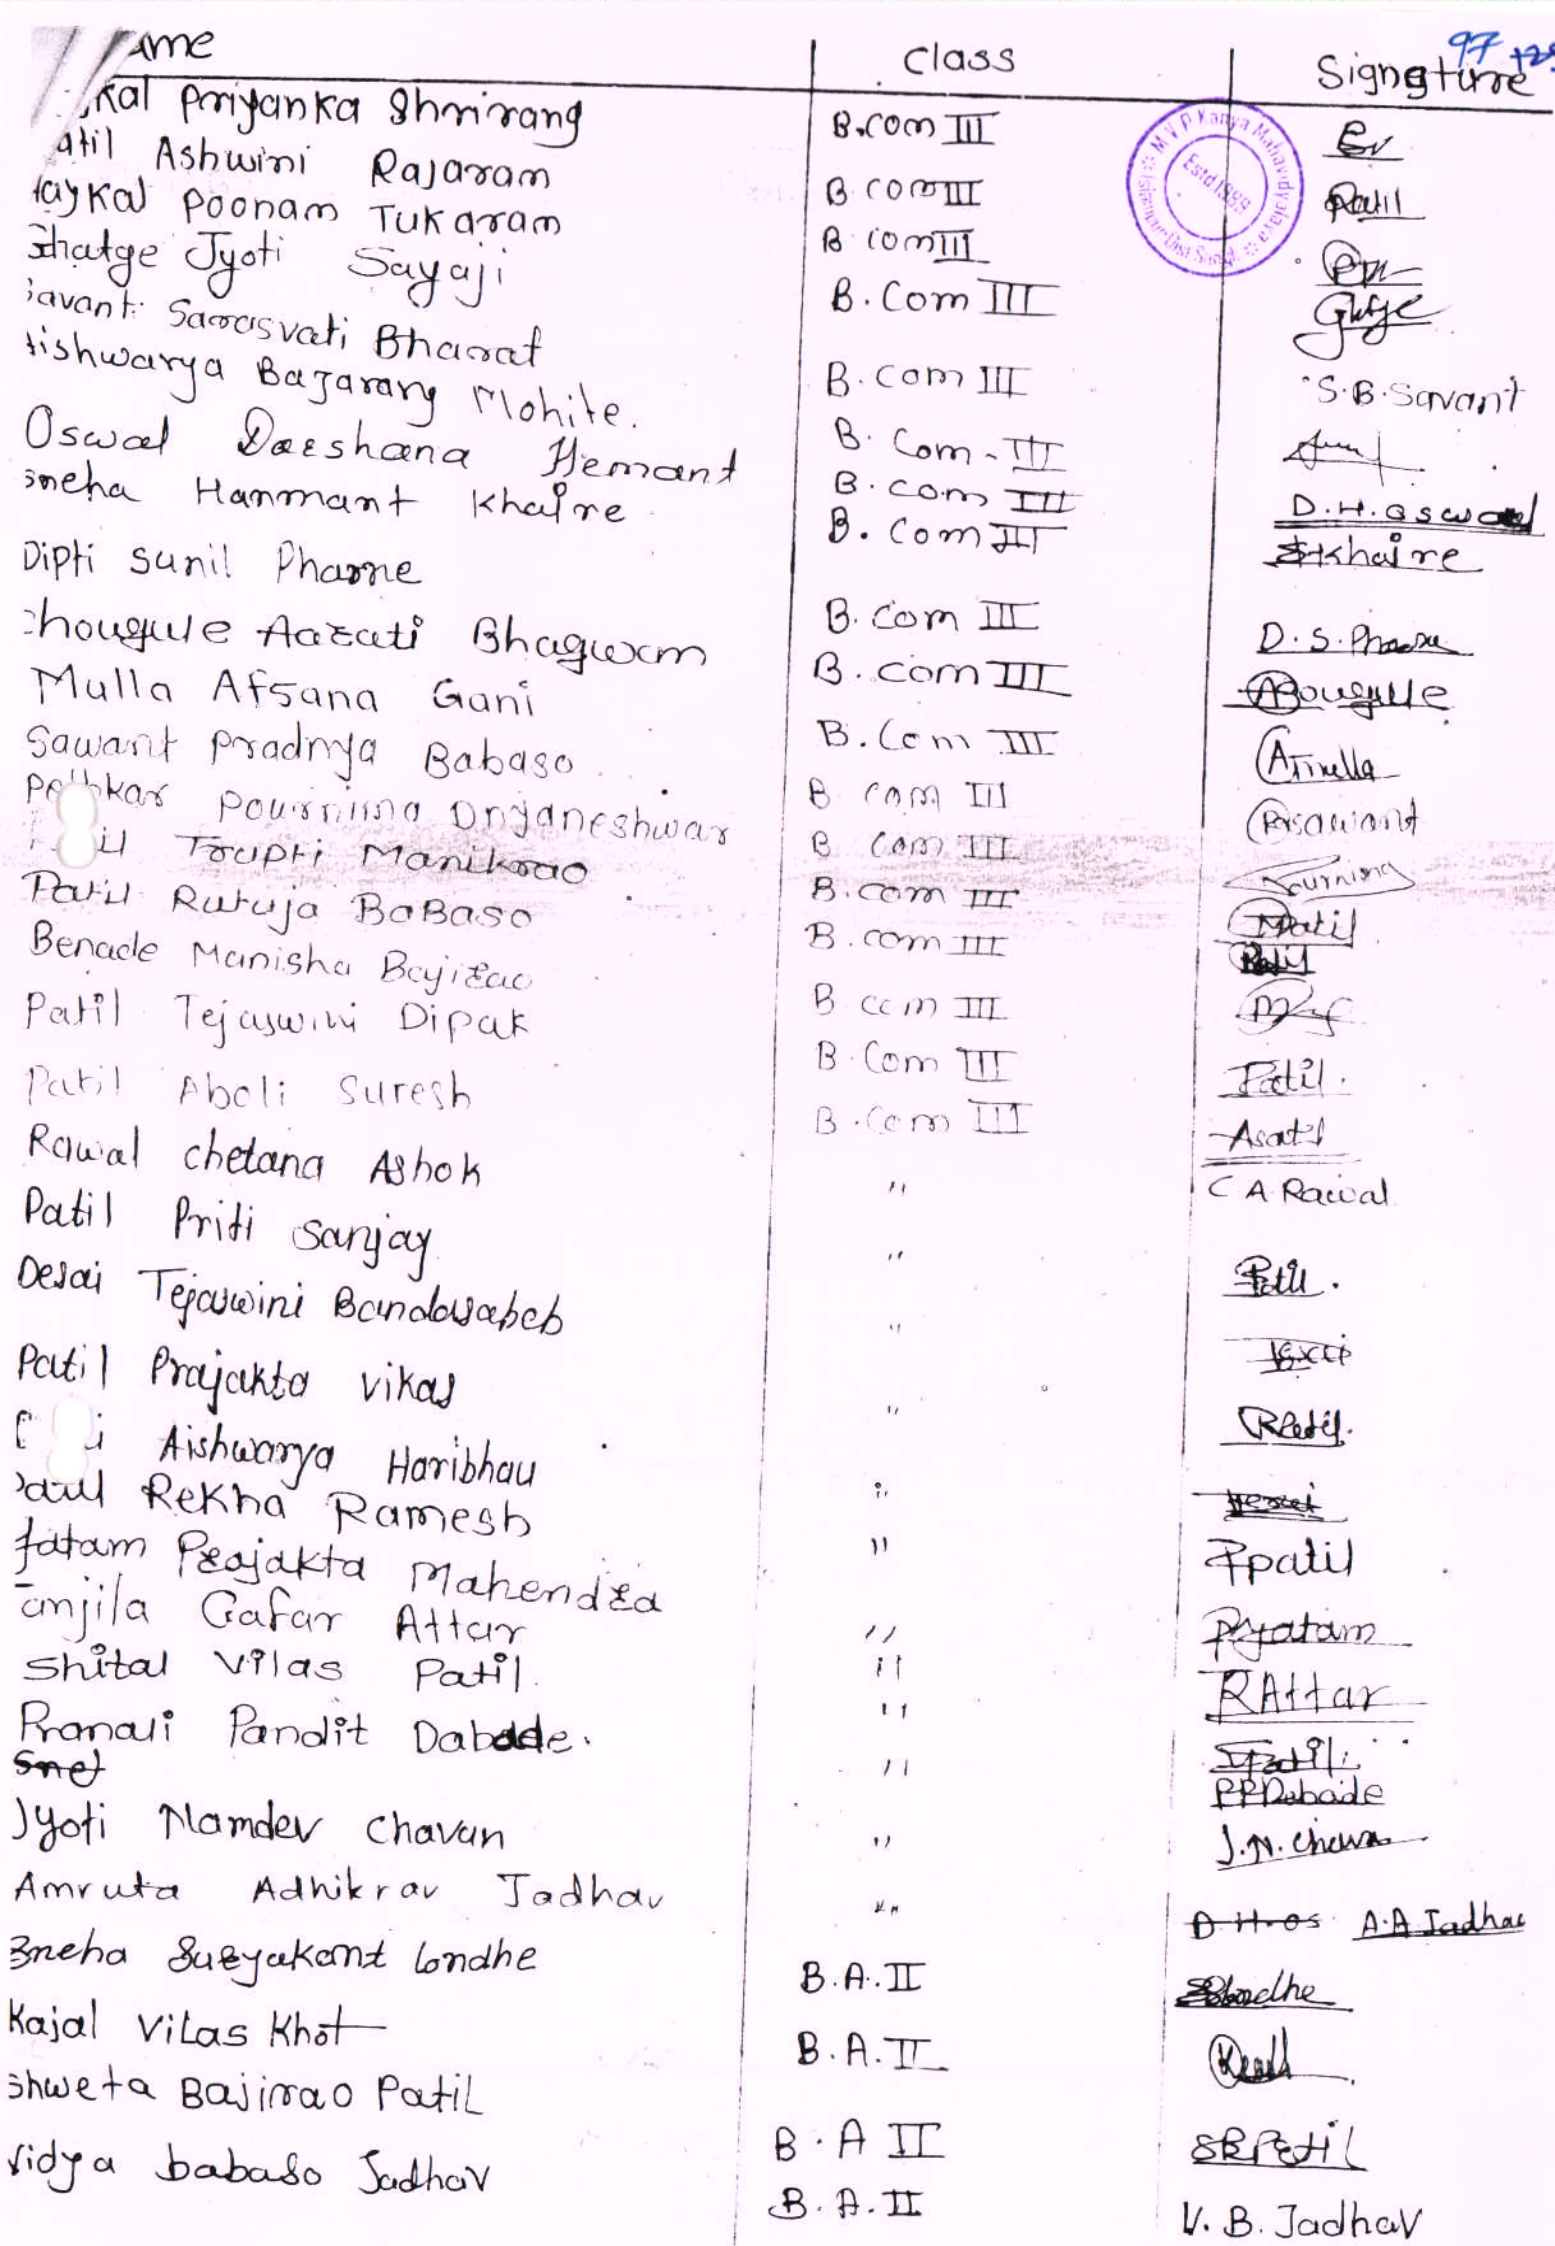 ame Class Signature 97
kal Priyanka Shrirang B.com III
atil Ashwini Rajaram B.com III Patil
aykal Poonam Tukaram B com III
Ghatge Jyoti Sayaji B.Com III
Savant Sarasvati Bharat B.com III S.B.Savant
Aishwarya Bajarang Mohite. B.Com-III
Oswal Darshana Hemant B.com III D.H.Oswal
Sneha Hanmant Khaire B.Com III Khaire
Dipti Sunil Pharne B.Com III D.S.Pharne
Chougule Aarati Bhagwan B.com III
Mulla Afsana Gani B.Com III AMulla
Sawant Pradnya Babaso B com III PSawant
Pethkar Pournima Dnyaneshwar B com III Pournima
il Trupti Manikrao B.com III TPatil
Patil Rutuja BaBaso B.com III Patil
Benade Manisha Bajirao B com III
Patil Tejaswini Dipak B.Com III Patil.
Patil Aboli Suresh B.Com III
Rawal chetana Ashok " C A Rawal
Patil Priti Sanjay " Patil.
Desai Tejaswini Bandasaheb "
Patil Prajakta vikas " Patil.
i Aishwarya Haribhau "
Patil Rekha Ramesh " patil
Jatam Prajakta Mahendra " PJatam
Tanjila Gafar Attar " Attar
Shital Vilas Patil. " SPatil.
Pranali Pandit Dabade. " PPDabade
Snet
Jyoti Namdev Chavan " J.N.Chavan
Amruta Adhikrav Jadhav " D H os A.A Jadhav
Sneha Suryakant Londhe B.A.II SLondhe
Kajal Vilas Khot B.A.II
Shweta Bajirao Patil B.A II SBPatil
Vidya babaso Jadhav B.A.II V.B.Jadhav
M V P Kanya Mahavidyalaya Islampur Dist Sangli
Estd 1989